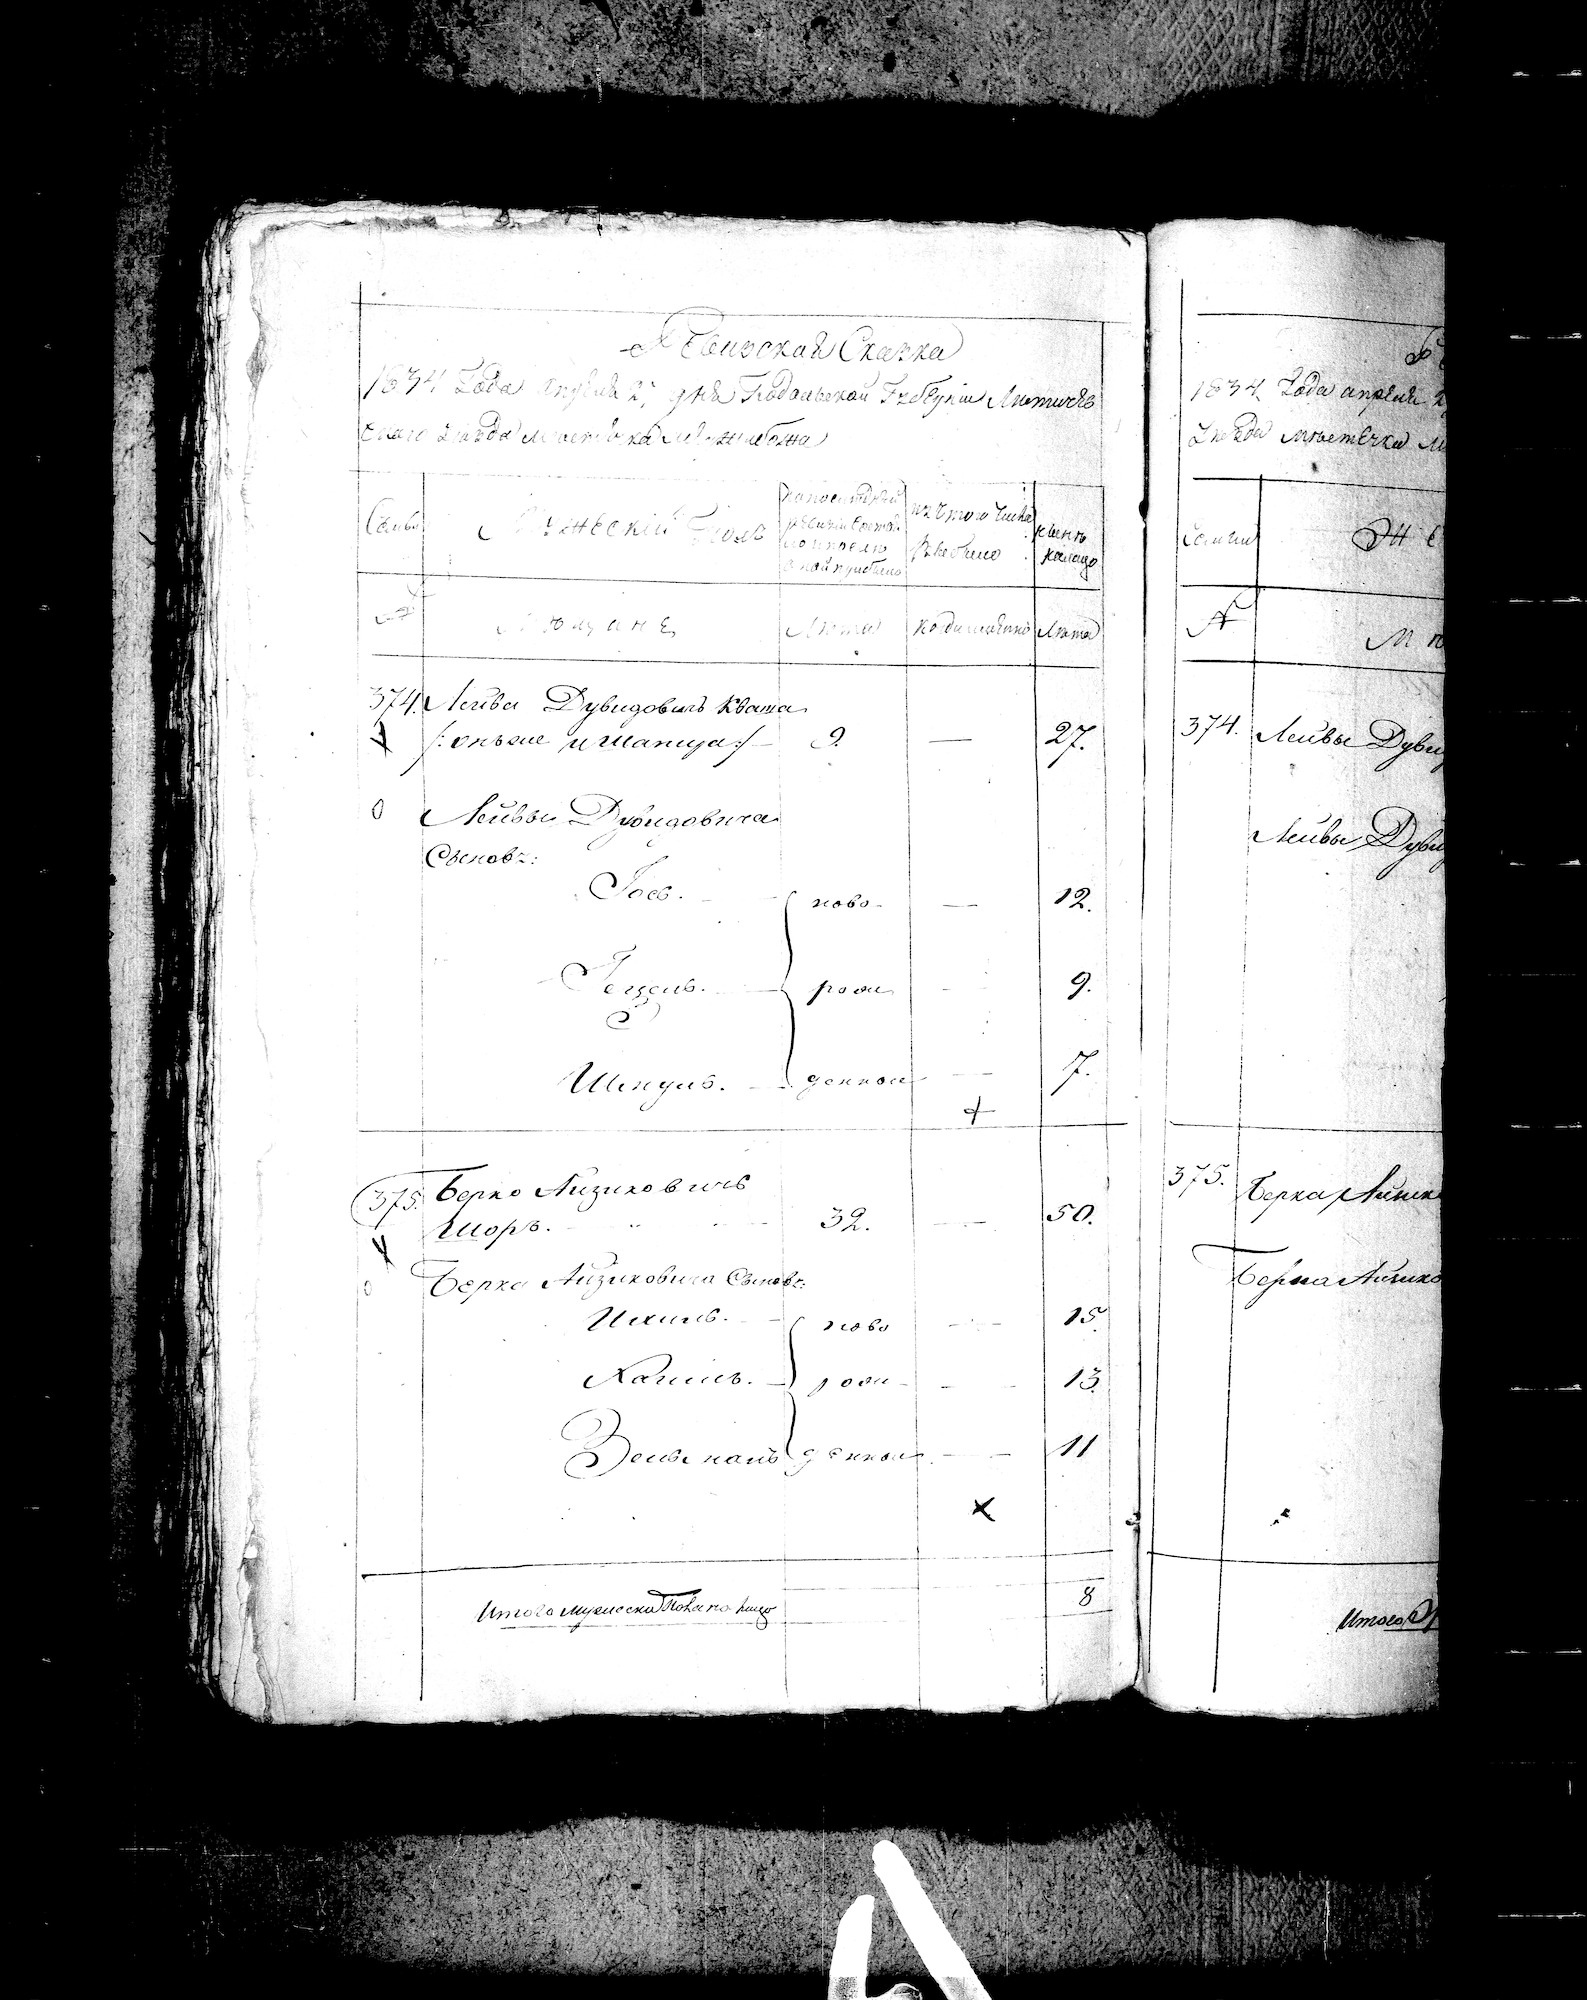 Ревизская Сказка
1834 Года апреля 27 дня Подольской Губернии Летичев
скаго уезда местечка Меджибожа
Семьи
Мужеский Полъ
на последней
ревизии состоя
ло и после
оной прибыло
изъ того числа
выбыло
ныне
налицо
№
Мещане
Лета
когда именно
Лета
374. Лейба Дувидовичъ Кваша
/: онъ же и Шапира :/ 9. — 27.
Лейбы Дувидовича
Сыновъ:
Iось. ново — 12.
Гецель. рож 9.
Шмуль. денной — 7.
375. Берко Айзиковичъ
Шоръ. 32. — 50.
Берка Айзиковича Сыновъ:
ново 15.
13.
Зельманъ денной 11
Итого мужеска Пола на лицо 8
1834 Года апреля 2
уезда местечка М
Семьи
Же
№
М
374. Лейбы Дуви
Лейбы Дуви
375. Берка Айзик
Берка Айзико
Итого